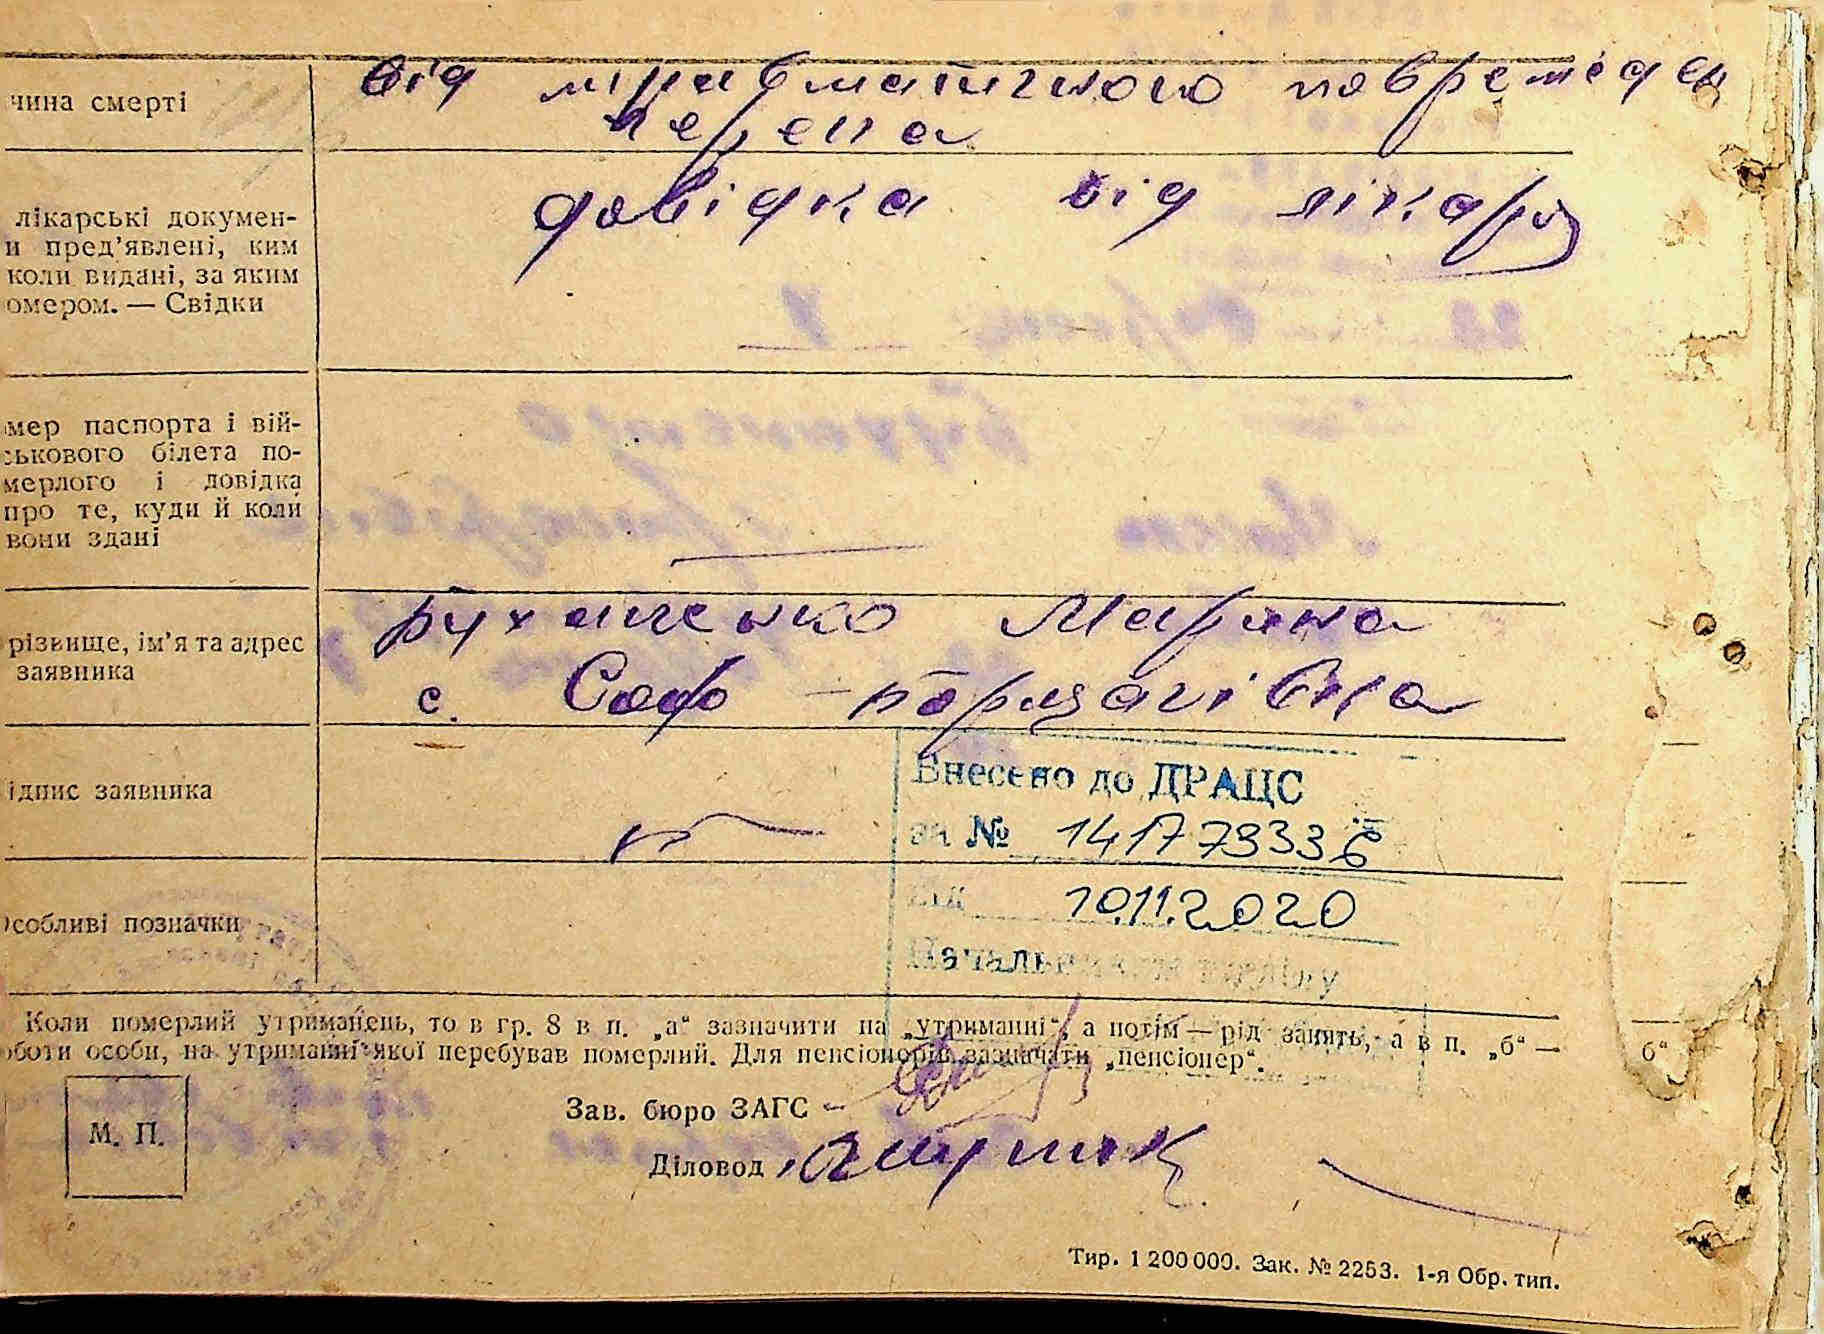 від травматичного повреждen
черепа
чина смерті
довідка від лікаря
лікарські докумен-
и пред'явлені, ким
коли видані, за яким
омером. — Свідки
мер паспорта і вій-
ського білета по-
мерлого і довідка
про те, куди й коли
вони здані
Рухатенко Марина
різвище, ім'я та адрес
заявника
с. Соф – Борщагівка
Внесено до ДРАЦС
ідпис заявника
за № 14177933
від 10.11.2020
собливі позначки
Начальник відділу
Коли померлий утриманець, то в гр. 8 в п. „а“ зазначити на „утриманні“, а потім — рід занять, а в п. „б“ —
боти особи, на утриманні якої перебував померлий. Для пенсіонерів зазначати „пенсіонер“.
б“
Зав. бюро ЗАГС
М. П.
Діловод
Тир. 1 200 000. Зак. № 2253. 1-я Обр. тип.